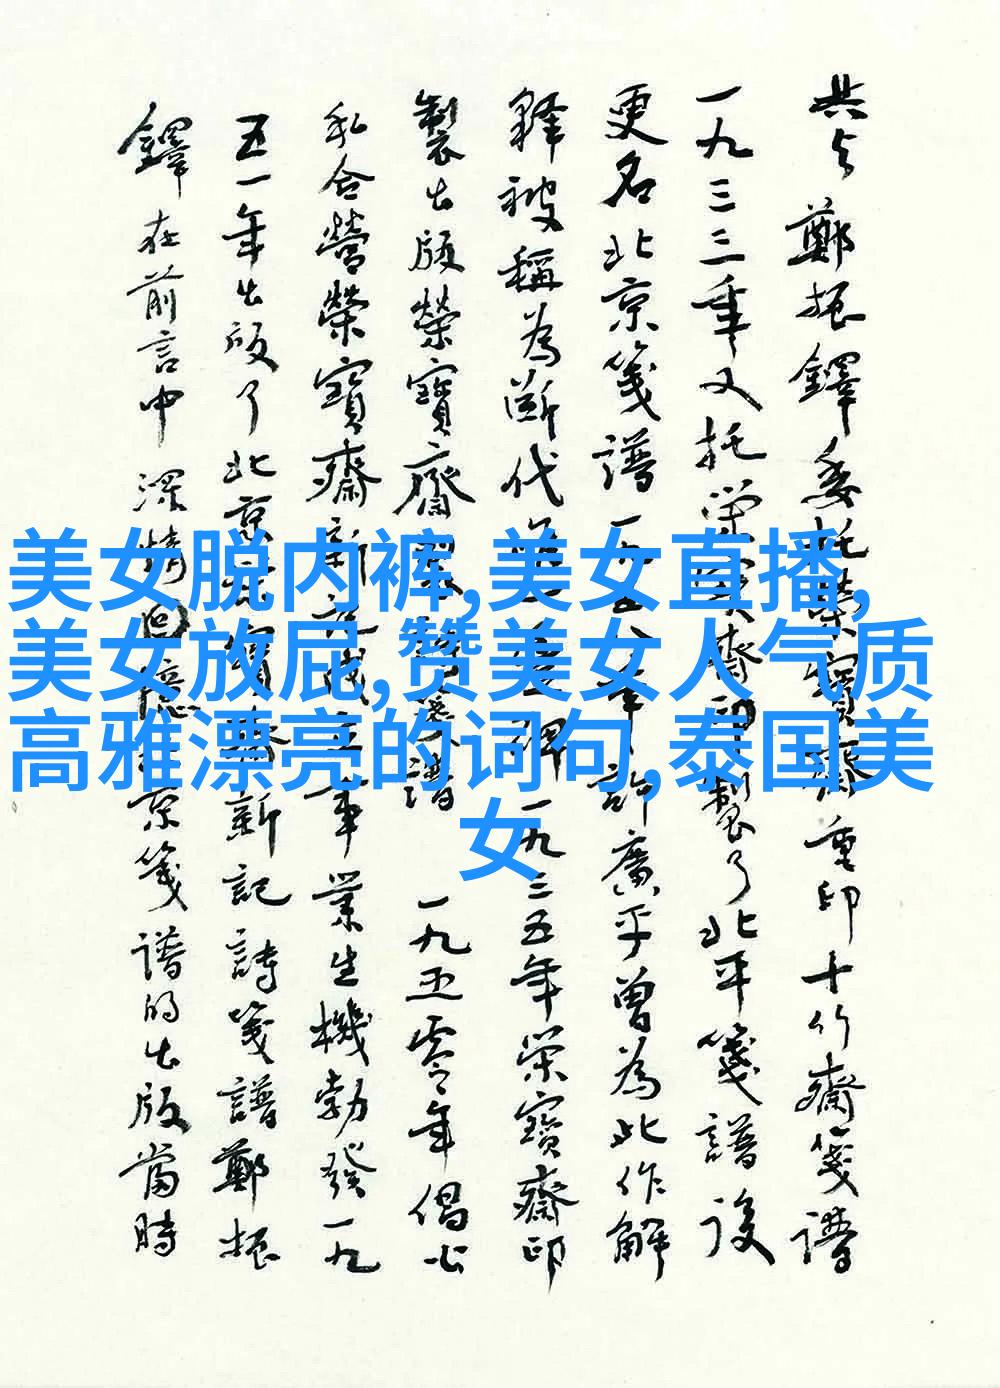 共与鄭振鐸委托榮寶齋重印十竹齋箋譜
一九三三年又托榮寶齋印製了北平箋譜後
更名北京箋譜一九五八年許廣平曾為此作解
釋被稱為斷代一九三五年榮寶齋印
製出版榮寶齋譜一九五零年倡公
私合營榮寶齋新事業生機勃發一九
五一年出版了北京榮寶齋新記詩箋譜鄭振
鐸在前言中深情回憶北京箋譜的出版當時
美女脱内裤,美女直播,
美女放屁,赞美女人气质
高雅漂亮的词句,泰国美
女